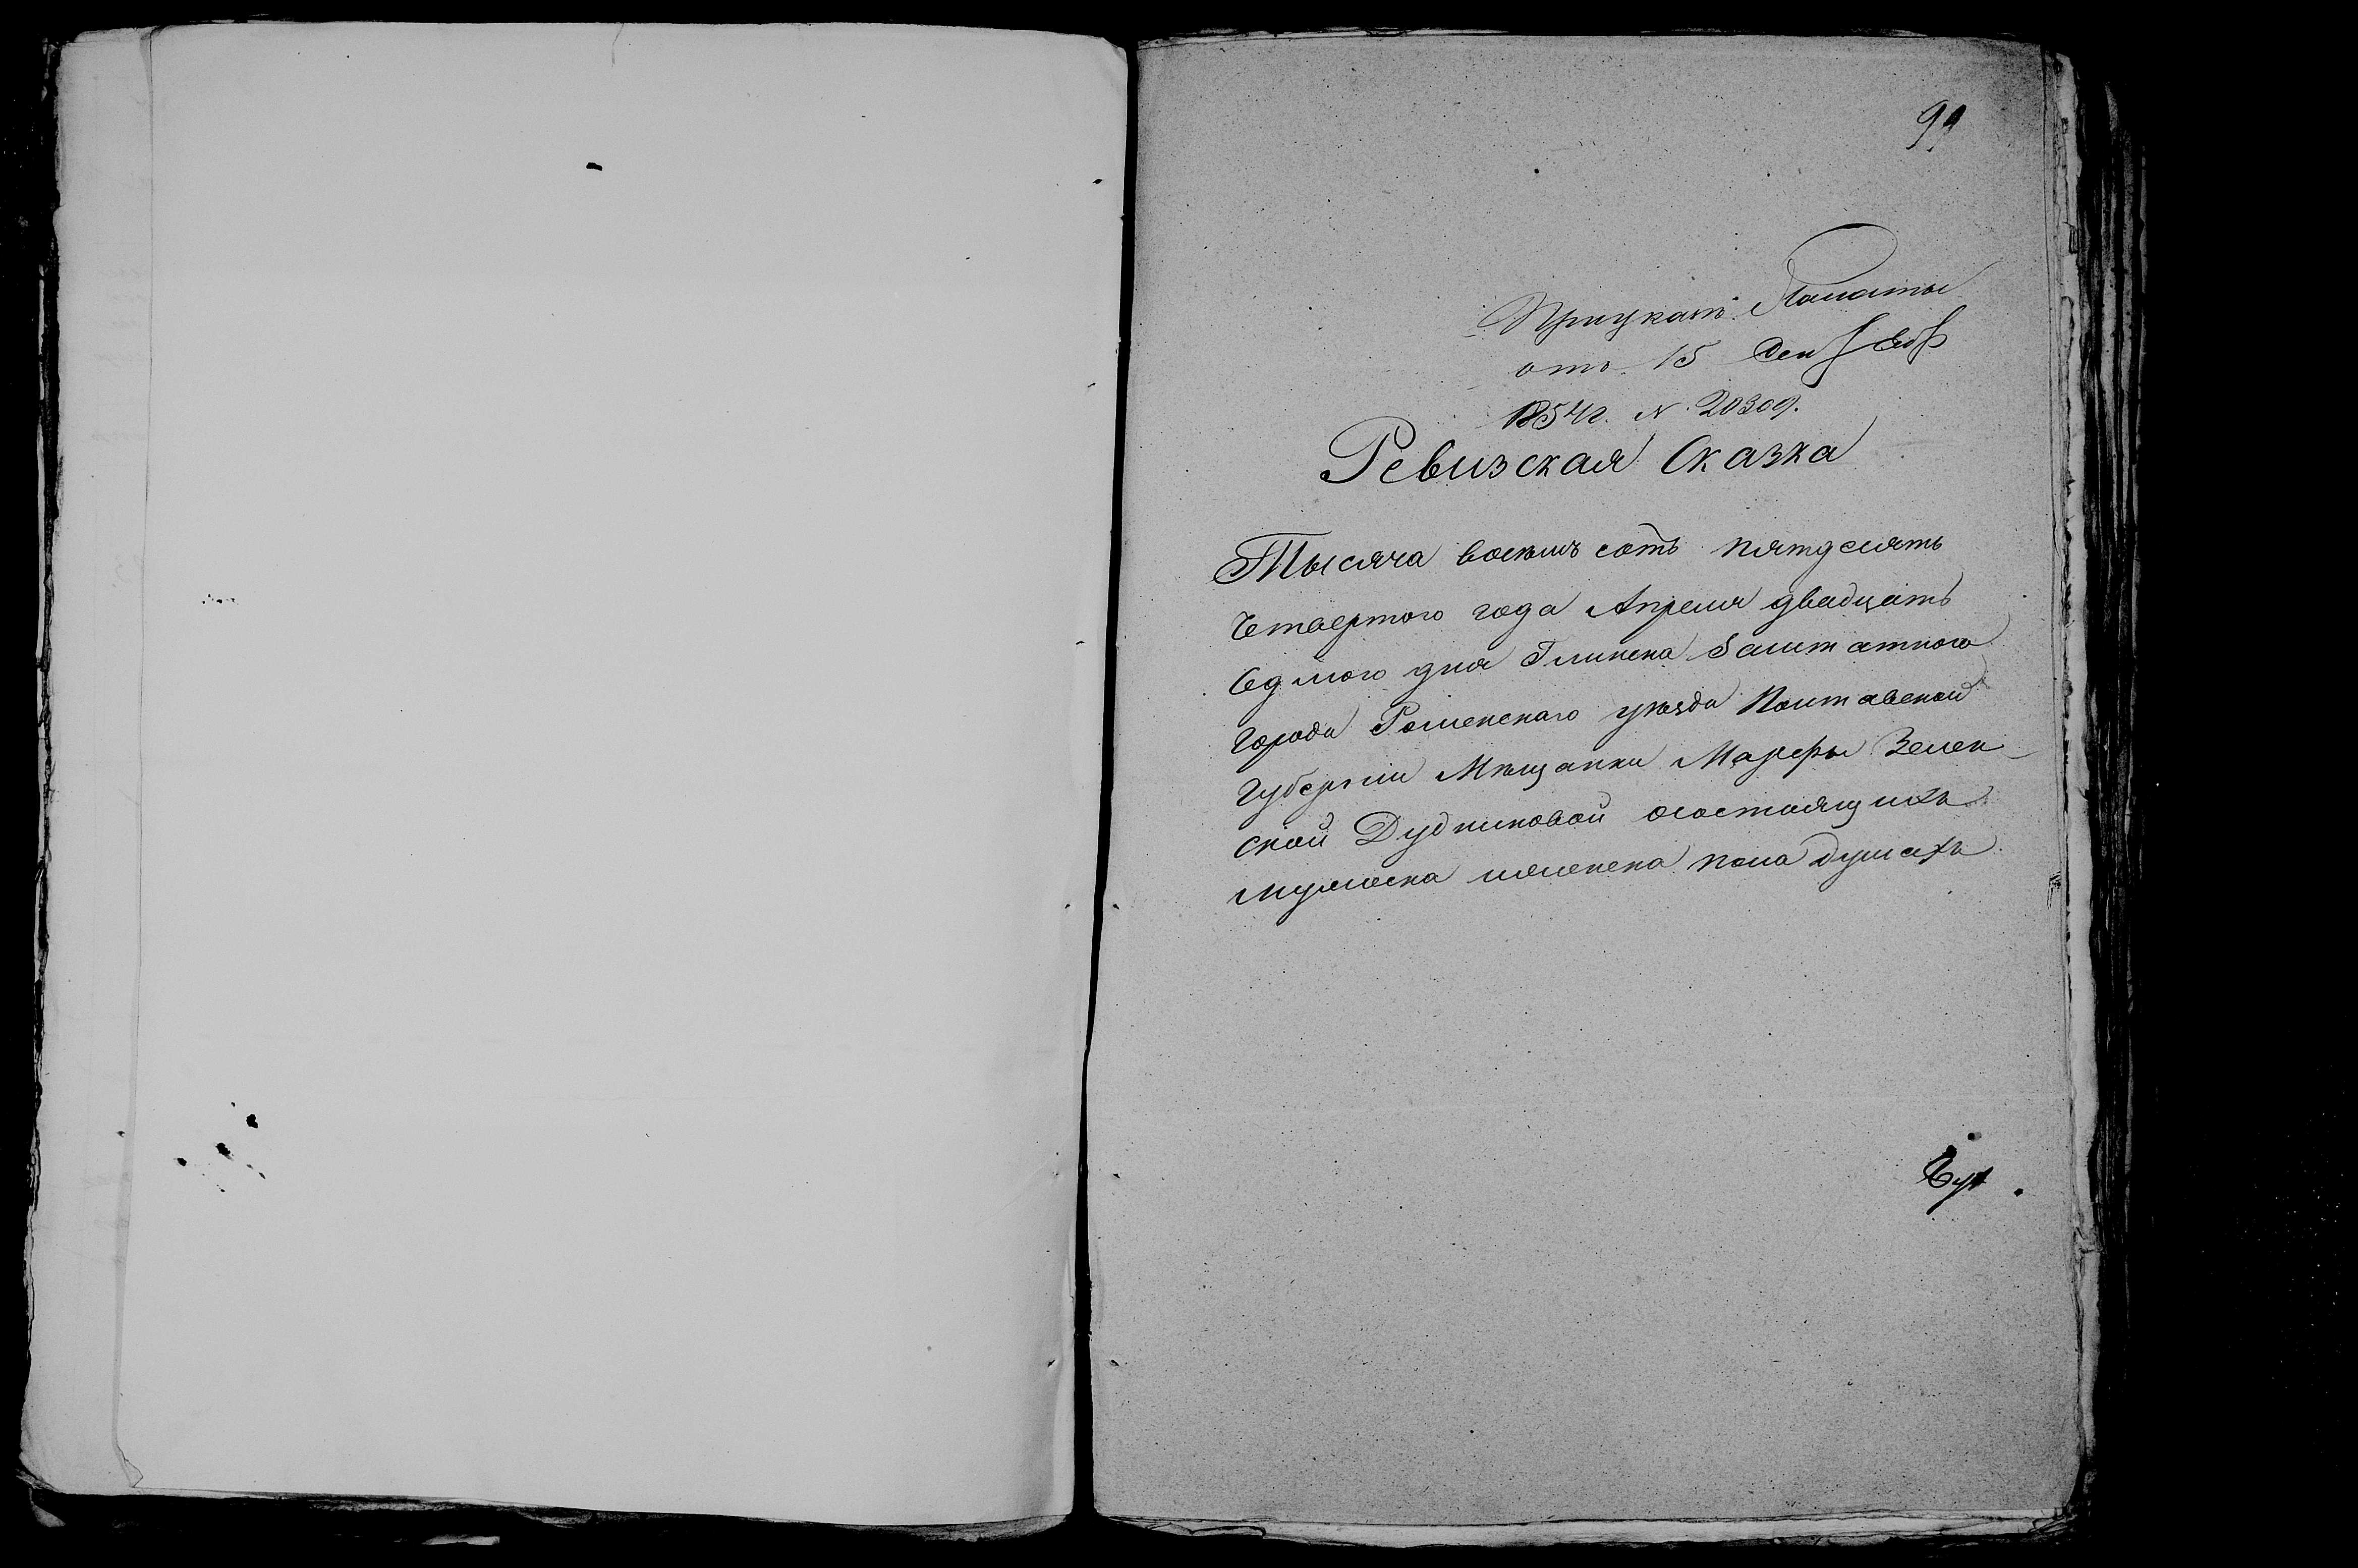 99
При указъ Палаты
отъ 15 Декаб
1854г. N. 20309.
Ревизская Сказка
Тысяча восемъ сотъ пятдесятъ
Четвертого года Апреля двадцать
Седмого дня Глинска Заштатного
Города Роменскаго уѣзда Полтавской
Губерніи Мѣщанки Марфы Зелен-
ской Дудниковой о состоящихъ
мужеска и женска пола душахъ